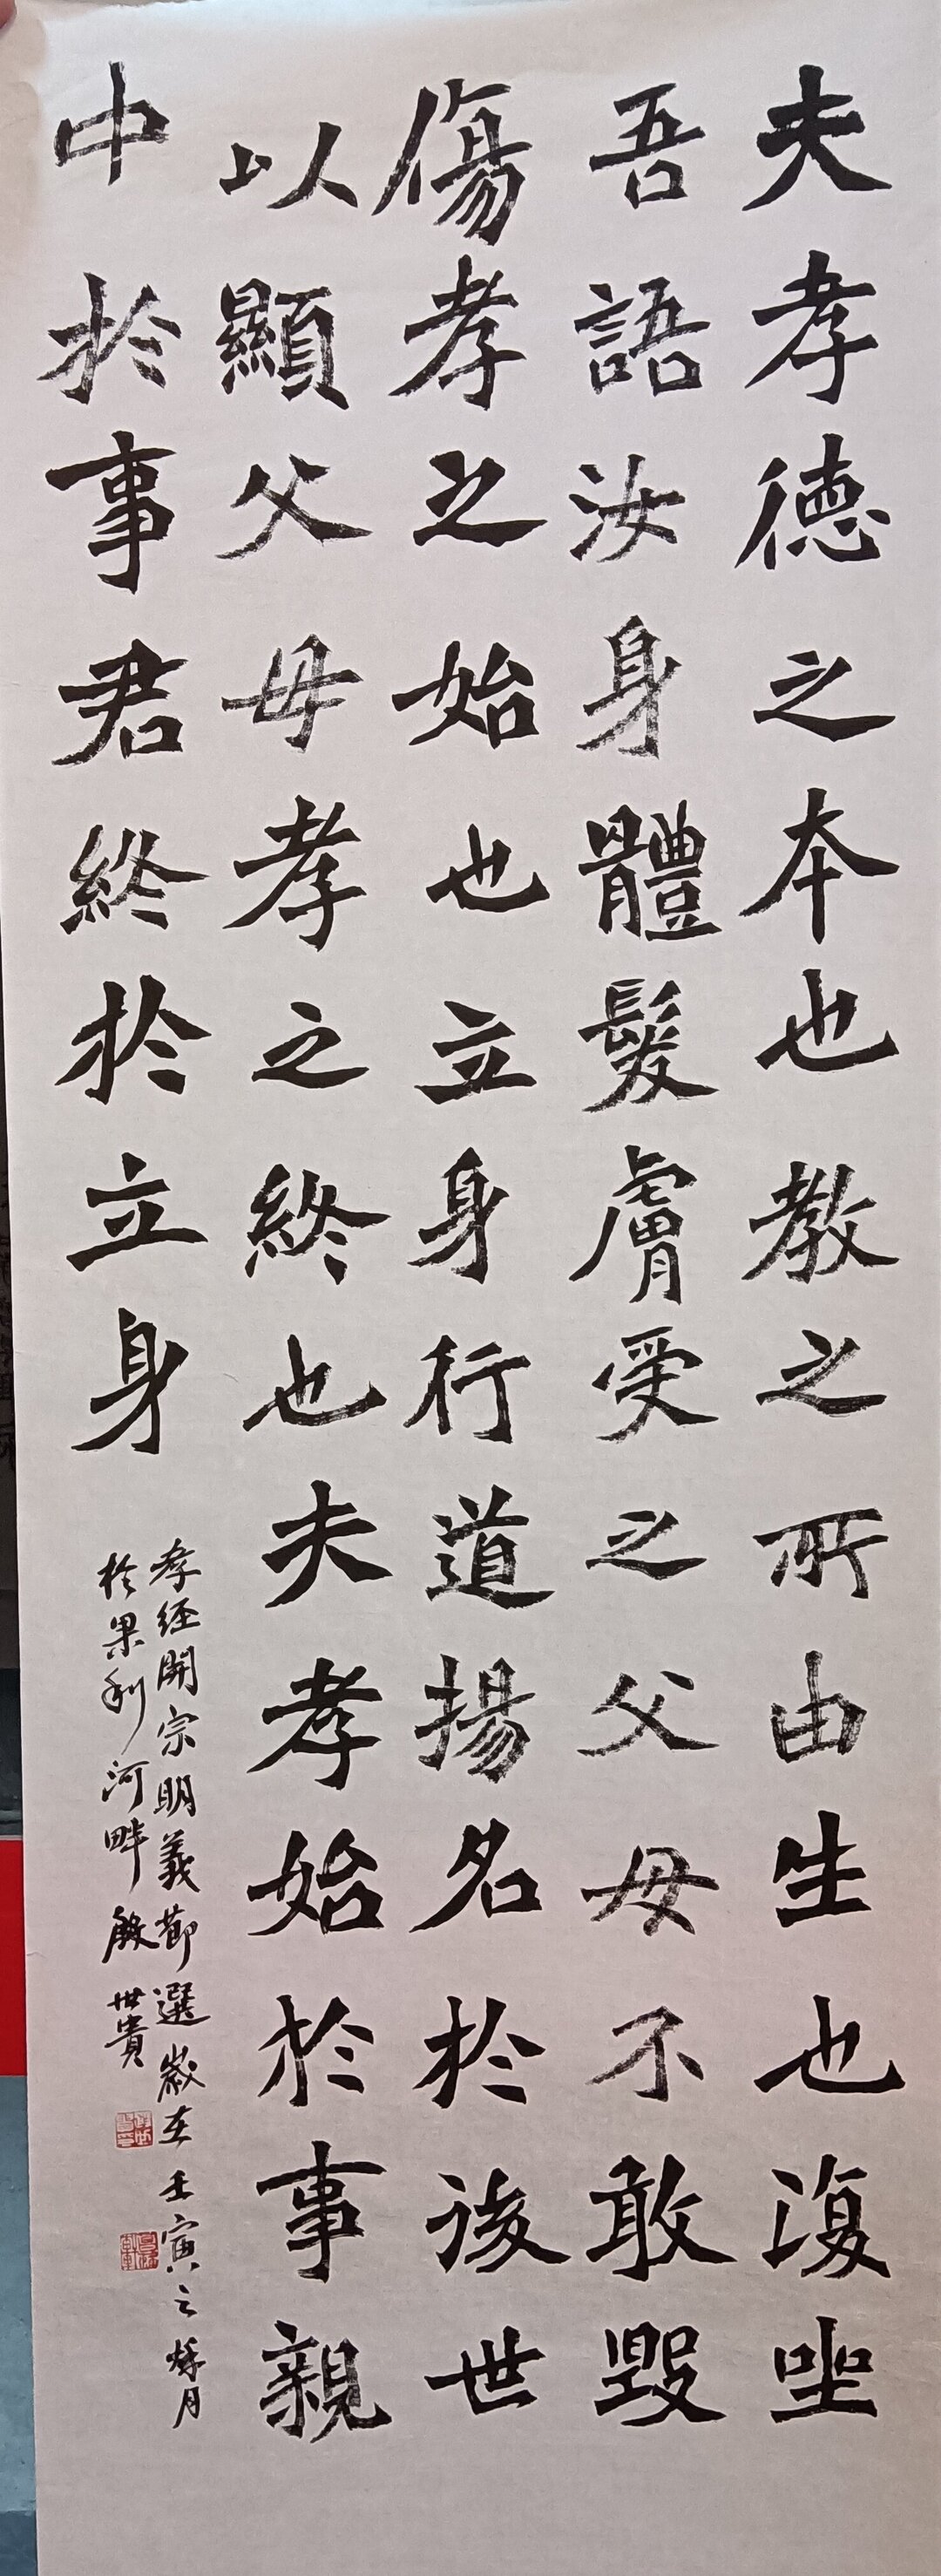 夫孝德之本也教之所由生也復坐
吾語汝身體髮膚受之父母不敢毀
傷孝之始也立身行道揚名於後世
以顯父母孝之終也夫孝始於事親
中於事君終於立身
孝經開宗明義節選歲在壬寅之秋月
於果利河畔殷世貴